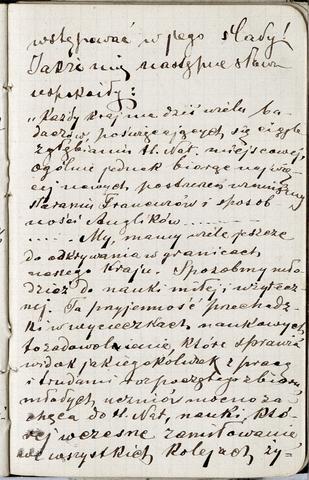 wstępować w jego ślady!
Także mię następne słowa
uspokoiły:
"Każdy kraj ma dziś wielu ba-
daczów, poświęcających się ciągle
zgłębianiu H. Nat. miejscowej,
ogólnie jednak biorąc najwię-
cej nowych postrzeżeń winniśmy
staraniu Francuzów i sposob
ności Anglików.........
..... My, mamy wiele jeszcze
do odkrywania w granicach
naszego kraju. Sposobmy mło
dzież do nauki miłej i użytecz
nej. Ta przyjemność przechadz-
ki w wycieczkach naukowych
to zadowolenie, które sprawia
widok jakiegokolwiek z pracą
i trudami rozpoczętego zbioru,
młodych uczniów mocno za-
chęca do H. Nat, nauki, któ-
rej wczesne zamiłowanie
we wszystkich kolejach ży-